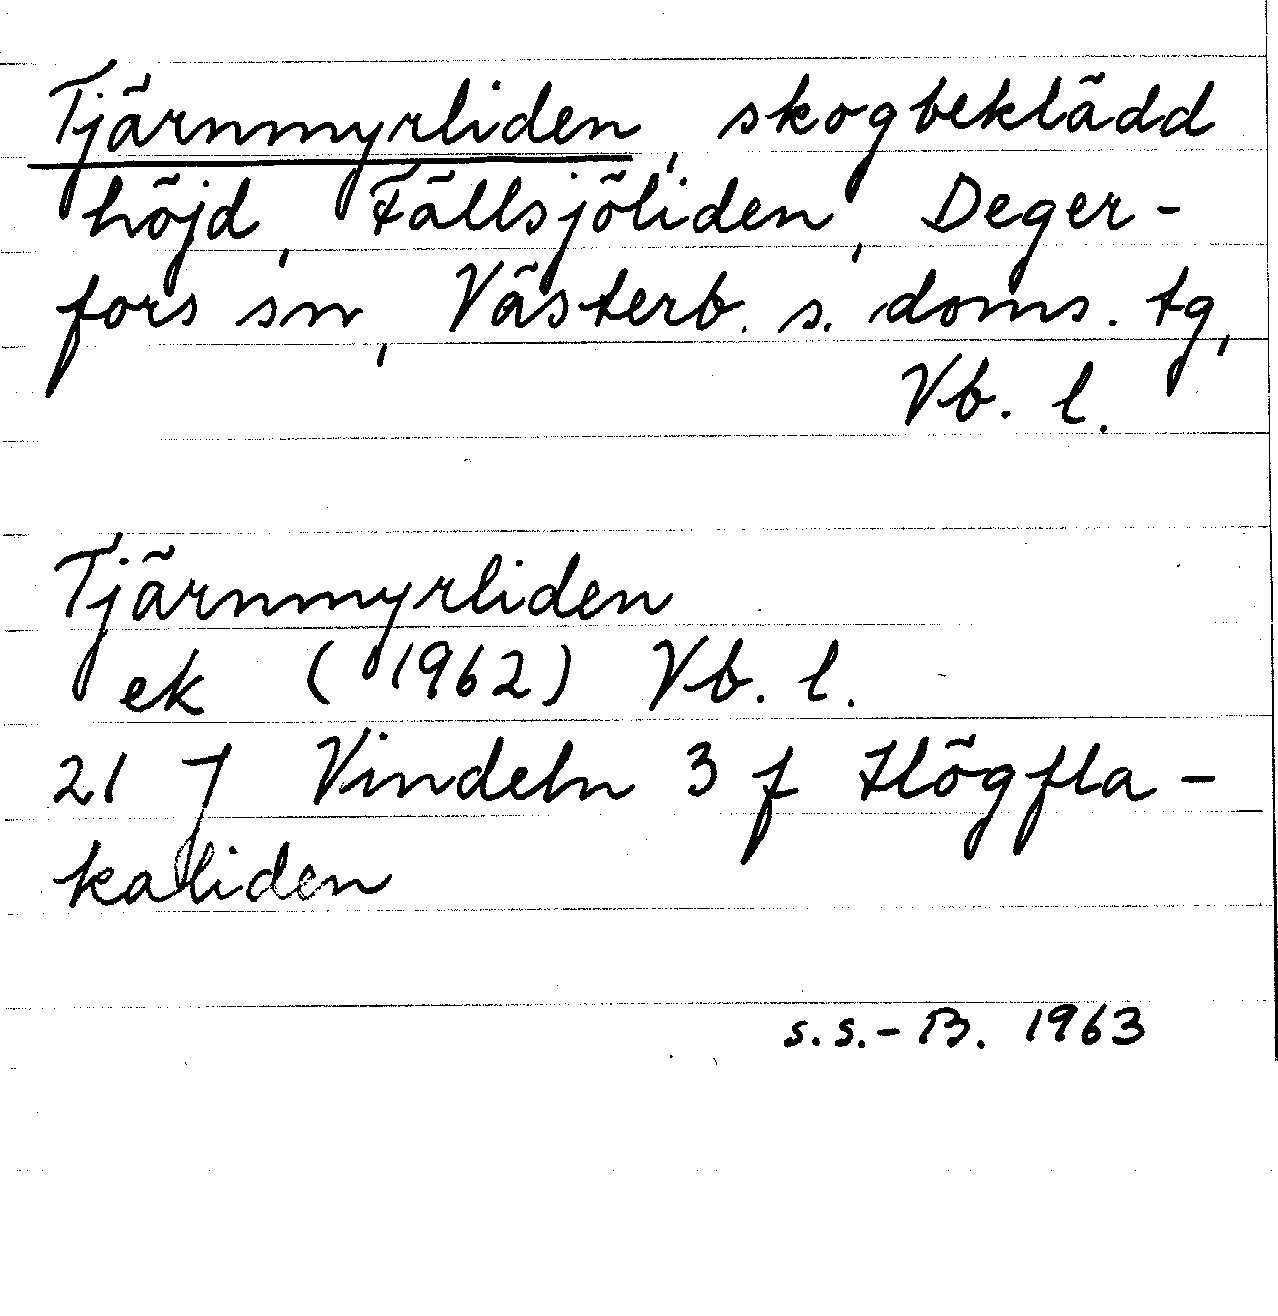 Tjärnmyrliden, skogbeklädd
höjd, Fällsjöliden, Deger-
fors sn, Västerb. s. doms. tg,
Vb. l.
Tjärnmyrliden
ek (1962) Vb. l.
21 J Vindeln 3 f Högfla-
kaliden
s.s.-B. 1963